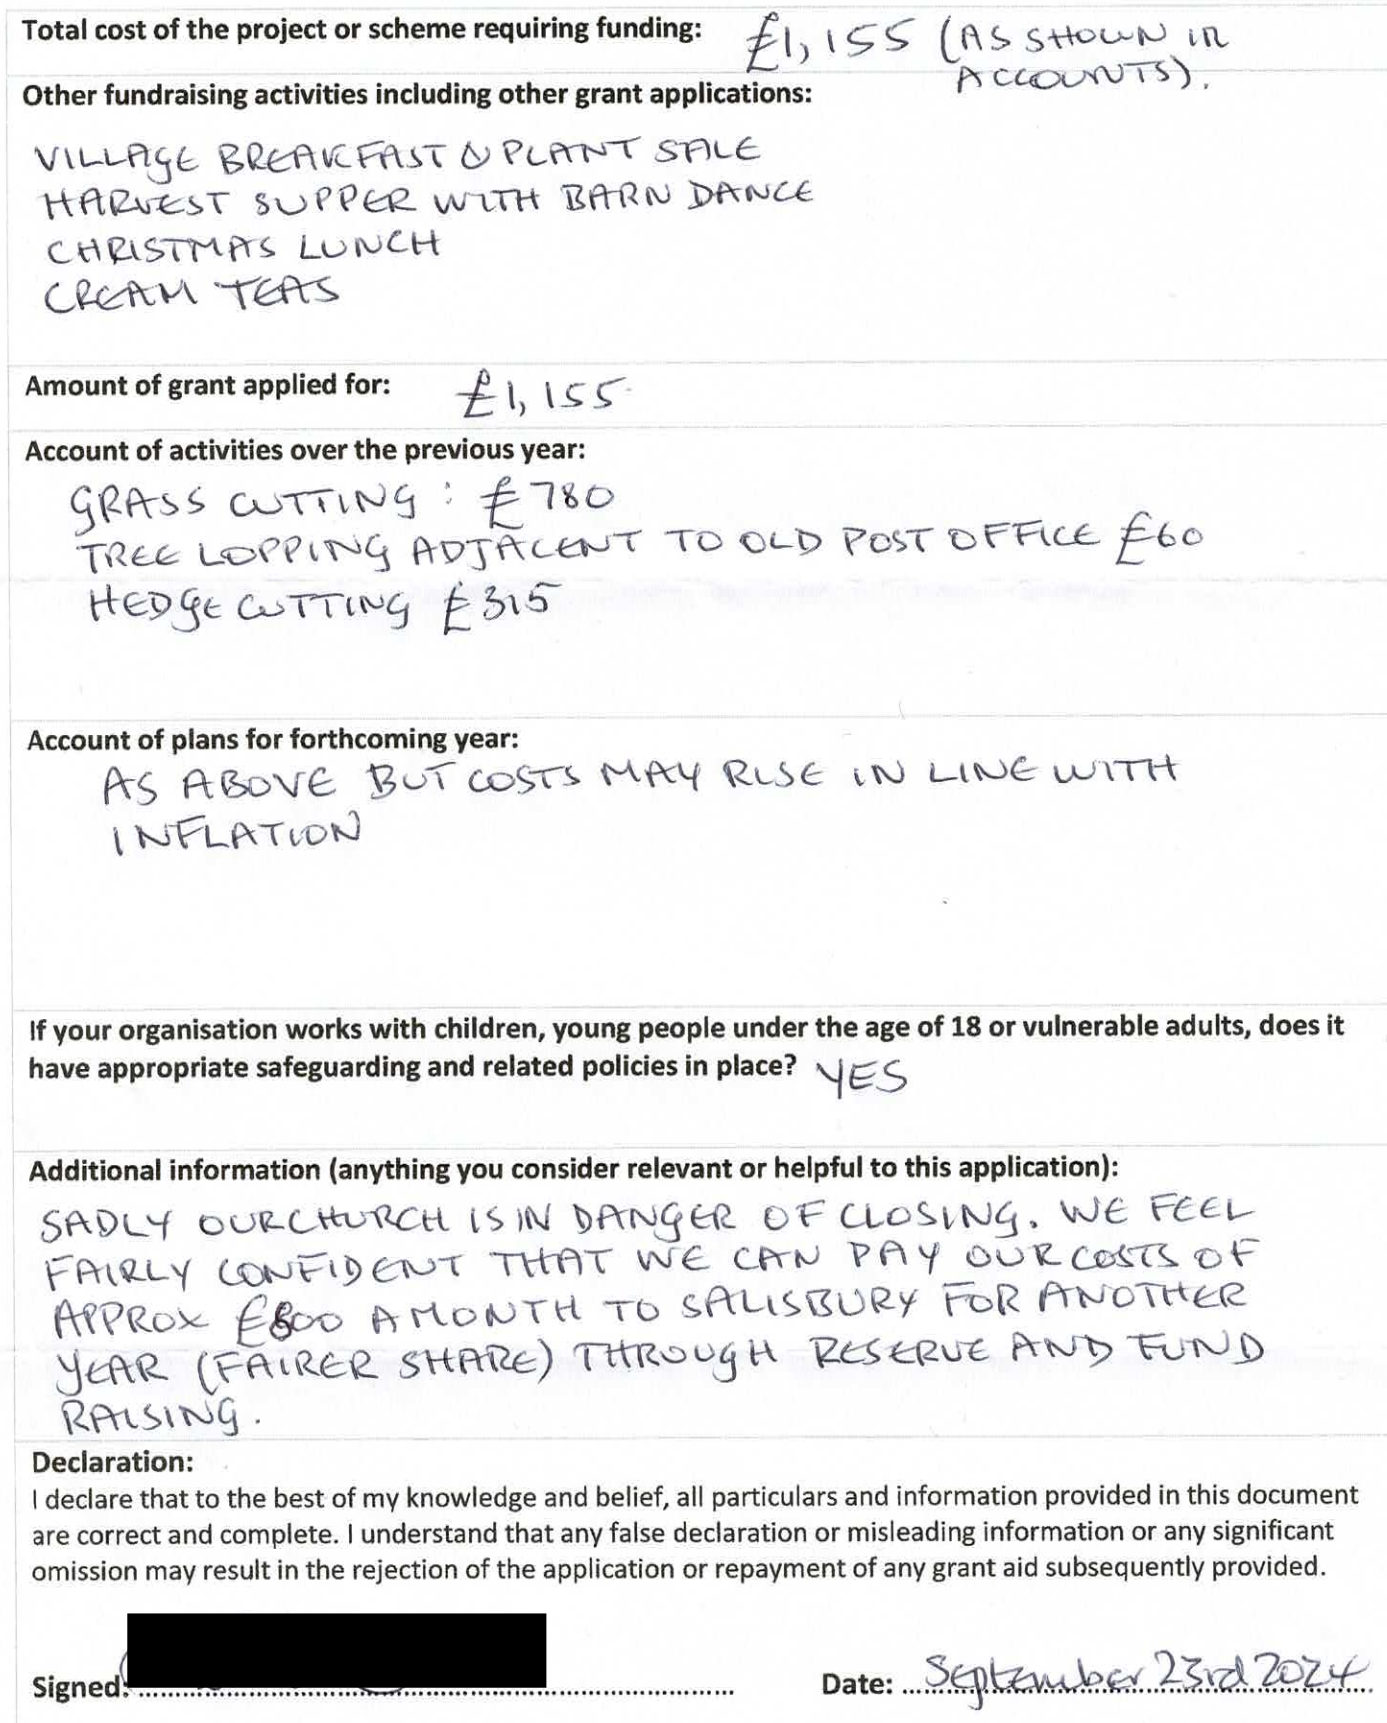 Total cost of the project or scheme requiring funding: £1,155 (AS SHOWN IN
ACCOUNTS).
Other fundraising activities including other grant applications:
VILLAGE BREAKFAST & PLANT SALE
HARVEST SUPPER WITH BARN DANCE
CHRISTMAS LUNCH
CREAM TEAS
Amount of grant applied for: £1,155
Account of activities over the previous year:
GRASS CUTTING : £780
TREE LOPPING ADJACENT TO OLD POST OFFICE £60
HEDGE CUTTING £315
Account of plans for forthcoming year:
AS ABOVE BUT COSTS MAY RISE IN LINE WITH
INFLATION
If your organisation works with children, young people under the age of 18 or vulnerable adults, does it
have appropriate safeguarding and related policies in place? YES
Additional information (anything you consider relevant or helpful to this application):
SADLY OUR CHURCH IS IN DANGER OF CLOSING. WE FEEL
FAIRLY CONFIDENT THAT WE CAN PAY OUR COSTS OF
APPROX A MONTH TO SALISBURY FOR ANOTHER
YEAR (FAIRER SHARE) THROUGH RESERVE AND FUND
RAISING.
Declaration:
I declare that to the best of my knowledge and belief, all particulars and information provided in this document
are correct and complete. I understand that any false declaration or misleading information or any significant
omission may result in the rejection of the application or repayment of any grant aid subsequently provided.
Signed: Date: September 23rd 2024